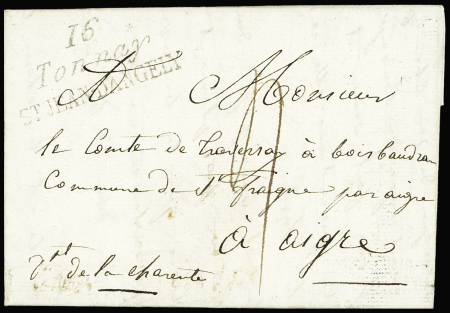 16
Tonnay
ST JEAN D'ANGELY
A Monsieur
le Comte de Traversay à boisbaudran
Commune de St fraigne par aigre
à aigre
Dpt de la charente